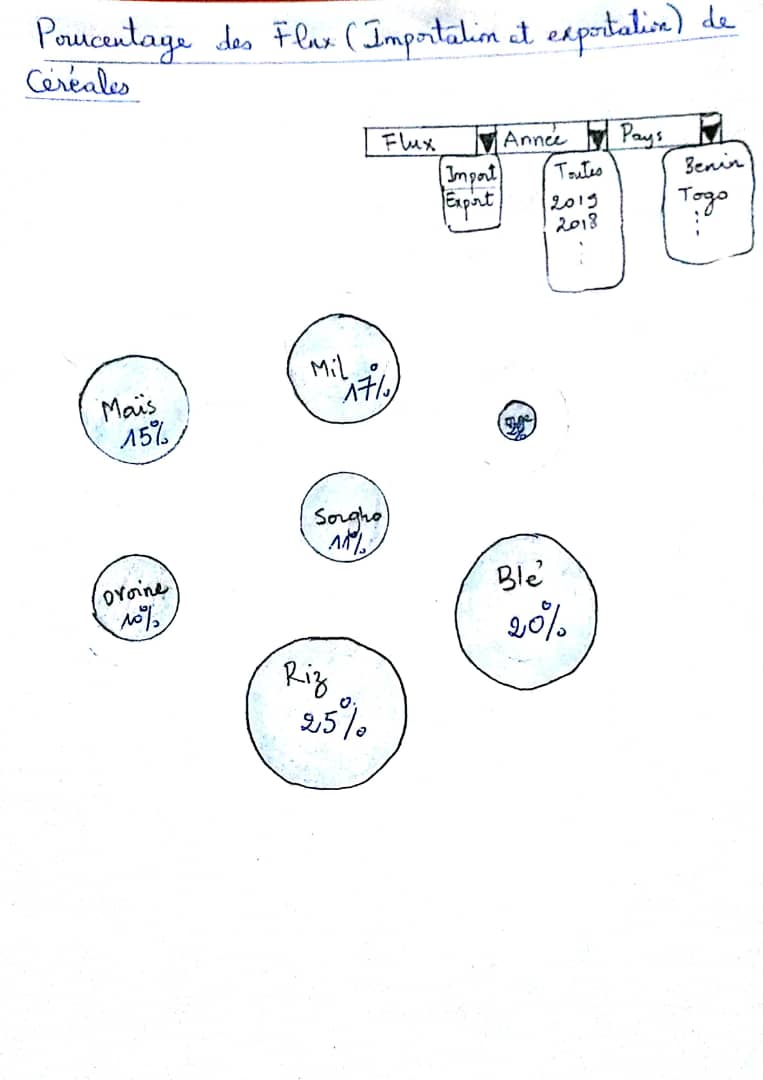 Pourcentage des Flux (Importation et exportation) de
Céréales
Flux Année Pays
Import
Export
Toutes
2019
2018
Benin
Togo
Mil
17%
Maïs
15%
Sorgho
11%
Blé
20%
avoine
10%
Riz
25%